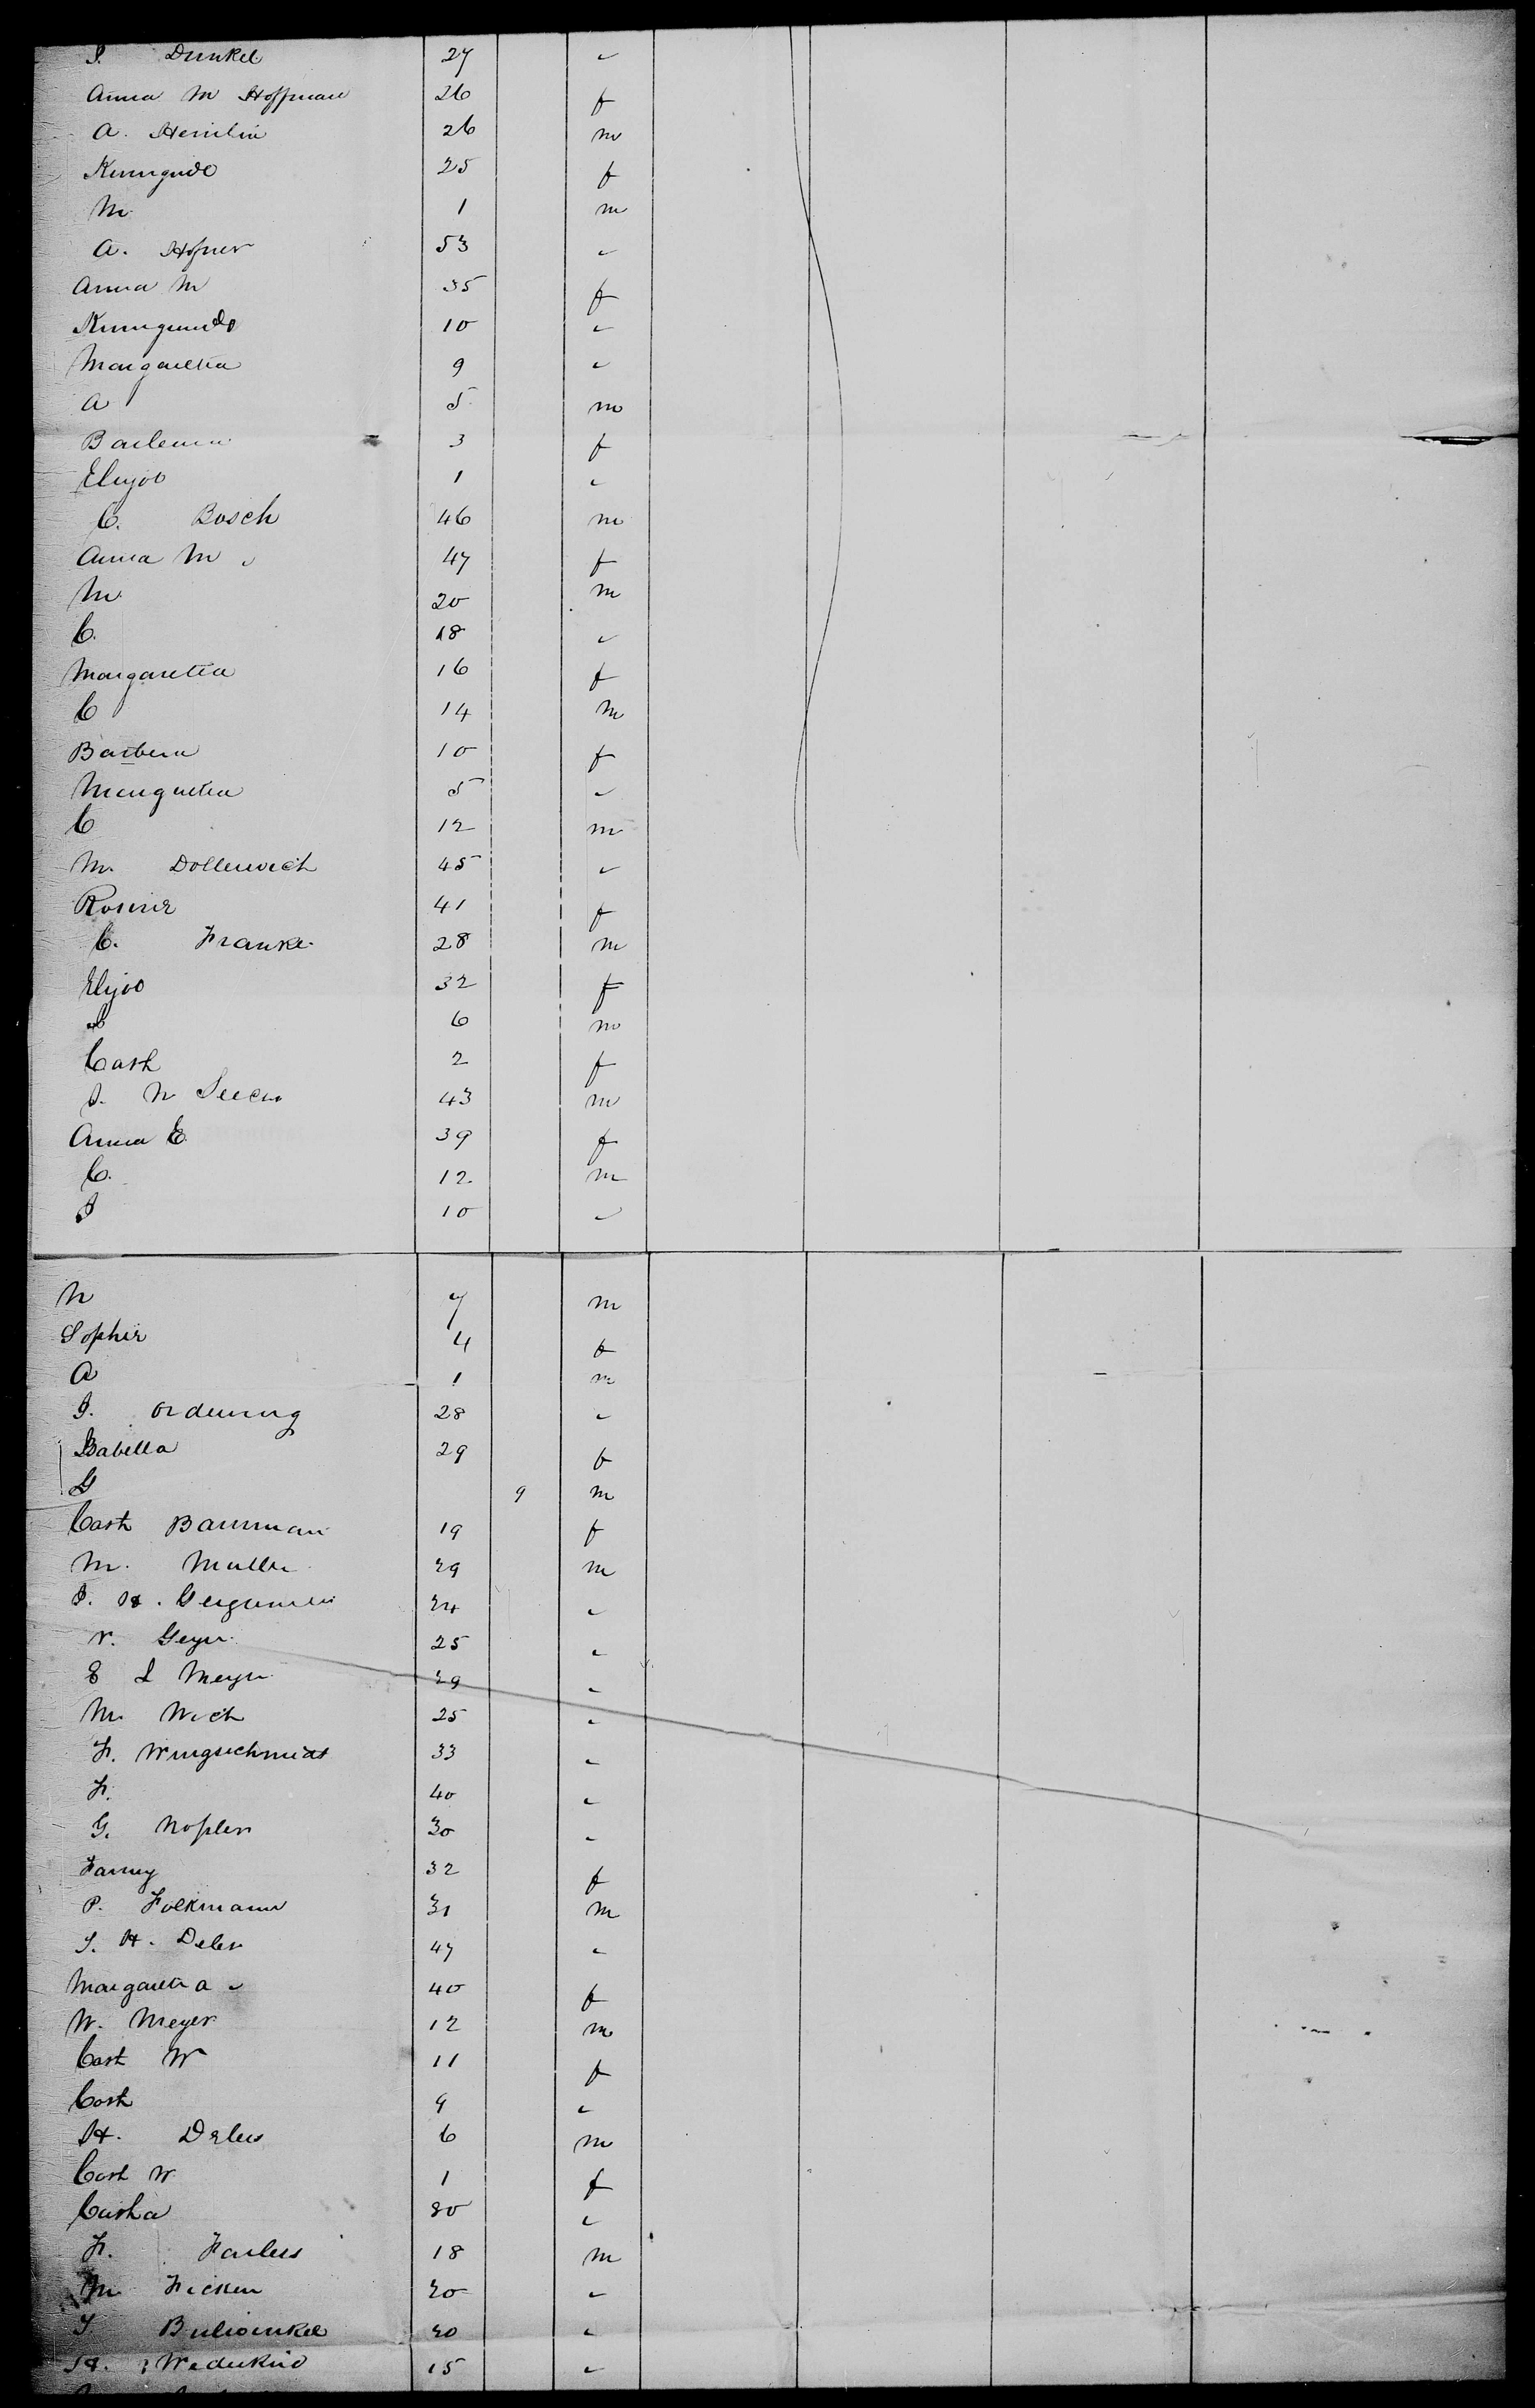 J. Dunkel 27 "
Anna M Hoffman 26 f
A. Heinlin 26 m
Kunigude 25 f
M 1 m
A. Hofner 53 "
Anna M 35 f
Kunigunde 10 "
Margaretha 9 "
A 5 m
3 f
1 "
C. Bosch 46 m
Anna M " 47 f
M 20 m
C. 18 "
Margaretha 16 f
C 14 m
Barbera 10 f
Margretha 5 "
C 12 m
M. Dollerwich 45 "
Rosine 41 f
C. Franke 28 m
32 f
6 m
Cath 2 f
43 m
Anna E 39 f
C. 12 m
J 10 "
N 7 m
Sophie 4 f
A 1 m
J. Ordenung 28 "
Babella 29 f
G 9 m
Cath Baumman 19 f
M. Muller 29 m
J. H. 24 "
V. Geyer 25 "
E L Meyer 29 "
M. Wich 25 "
F. Wingschmidt 33 "
F. 40 "
G. Nopler 30 "
Fanny 32 f
P. Folkmann 31 m
J. H. Deler 47 "
Margaretha " 40 f
W. Meyer 12 m
Cath W 11 f
Cath 9 "
H. Deler 6 m
Cath W 1 f
Catha 80 "
F. 18 m
M Ficken 20 "
J 20 "
H. Wedekind 15 "